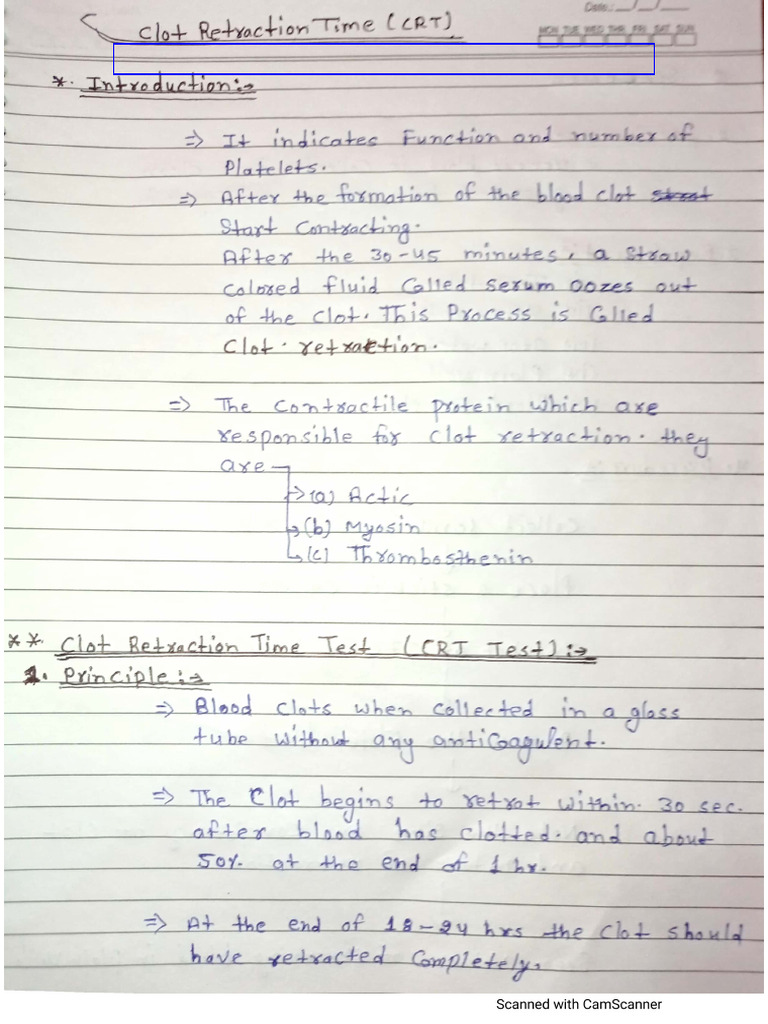 Clot Retraction Time (CRT)
Date:__/__/__
MON TUE WED THR FRI SAT SUN
*. Introduction:→
⇒ It indicates Function and number of
Platelets.
⇒ After the formation of the blood clot
Start Contracting.
After the 30-45 minutes, a straw
colored fluid Called serum oozes out
of the clot. This Process is Called
Clot. retraction.
⇒ The Contractile protein which are
responsible for clot retraction. they
are
→(a) Actic
→(b) Myosin
→(c) Thrombosthenin
**. Clot Retraction Time Test (CRT Test):→
1. Principle:→
⇒ Blood clots when collected in a glass
tube without any anticoagulent.
⇒ The Clot begins to retrat within. 30 sec.
after blood has clotted. and about
50% at the end of 1 hr.
⇒ At the end of 18-24 hrs the clot should
have retracted Completely.
Scanned with CamScanner